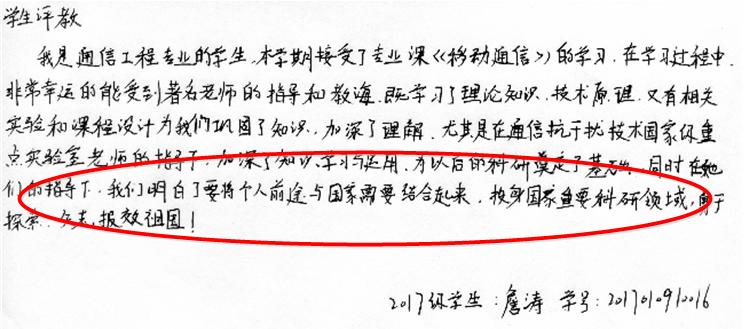 学生评教
我是通信工程专业的学生,本学期接受了专业课《移动通信》的学习,在学习过程中,
非常幸运的能受到著名老师的指导和教诲,既学习了理论知识、技术原理,又有相关
实验和课程设计为我们巩固了知识,加深了理解.尤其是在通信抗干扰技术国家级重
点实验室老师的指导下,加深了知识学习与运用,为以后的科研奠定了基础,同时在她
们的指导下,我们明白了要将个人前途与国家需要结合起来,投身国家重要科研领域,勇于
探索、报效祖国!
2017级学生:詹涛 学号:2017010910016